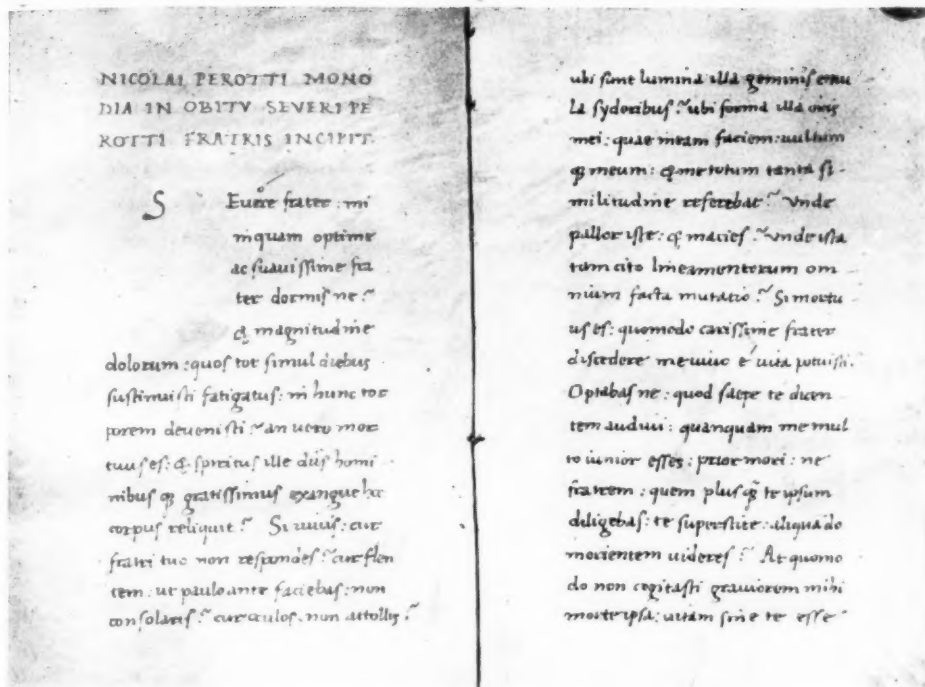 NICOLAI PEROTTI MONO
DIA IN OBITV SEVERI PE
ROTTI FRATRIS INCIPIT.
SEuere frater: mi
inquam optime
ac suauissime fra
ter dormis ne?
& magnitudine
dolorum: quos tot simul diebus
sustinuisti fatigatus: in hunc tor
porem deuenisti? an uero mor
tuus es: & spiritus ille diis homi
nibus gratissimus exangue hoc
corpus reliquit? Si uiuis: cur
fratri tuo non respondes? cur flen
tem: ut paulo ante faciebas: non
consolaris? cur oculos non attollis?
ubi sunt lumina illa geminis emu
la syderibus? ubi forma illa oris
mei: quae meam faciem: uultum
qȝ meum: & me totum tanta si
militudine referebat? Vnde
pallor iste: & macies? unde ista
tam cito lineamentorum om
nium facta mutatio? Si mortu
us es: quomodo carissime frater
discedere me uiuo e uita potuisti.
Optabas ne: quod saepe te dicen
tem audiui: quanquam me mul
to iunior esses: prior mori: ne
fratrem: quem plus te ipsum
diligebas: te superstite: aliquādo
morientem uideres? At quomo
do non cogitasti grauiorem mihi
morte ipsa: uitam sine te esse